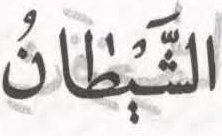 الشَّيْطَانُ